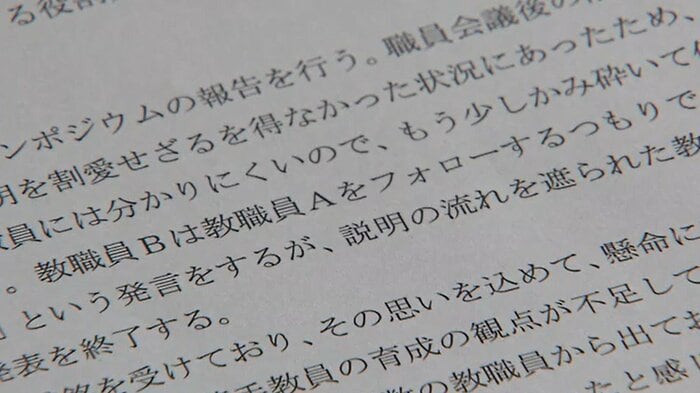 る役割
ンポジウムの報告を行う。職員会議後の
明を割愛せざるを得なかった状況にあったため、
員には分かりにくいので、もう少しかみ砕いて
。教職員Bは教職員Aをフォローするつもりで
」という発言をするが、説明の流れを遮られた教
発表を終了する。
を受けており、その思いを込めて、懸命に
教員の育成の観点が不足して
の教職員から出てお
たと感